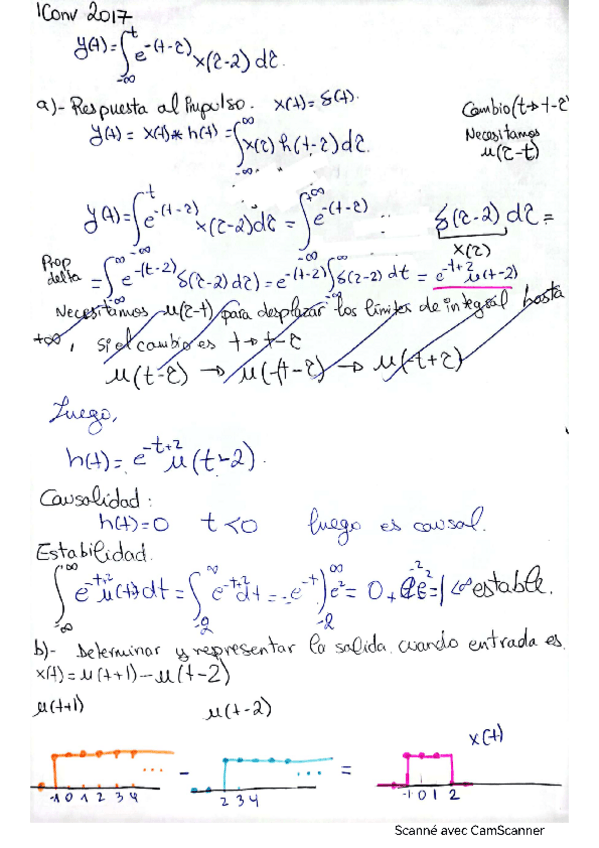 1Conv 2017
y(t) = ∫_{-∞}^{t} e^{-(t-τ)} x(τ-2) dτ.
a)- Respuesta al Impulso. x(t) = δ(t).
Cambio (t→t-τ
y(t) = x(t) * h(t) = ∫_{-∞}^{∞} x(τ) h(t-τ) dτ.
Necesitamos
u(τ-t)
y(t) = ∫_{-∞}^{t} e^{-(t-τ)} x(τ-2) dτ = ∫_{-∞}^{+∞} e^{-(t-τ)} δ(τ-2) dτ =
x(τ)
Prop delta = ∫_{-∞}^{∞} e^{-(t-2)} δ(τ-2) dτ) = e^{-(t-2)} ∫_{-∞}^{∞} δ(τ-2) dt = e^{-t+2} u(t-2)
Necesitamos u(τ-t) para desplazar los límites de integral hasta
+∞, si el cambio es t→t-τ
u(t-τ) → u(-t-τ) → u(-t+τ)
Luego,
h(t) = e^{-t+2} u(t-2).
Causalidad:
h(t)=0 t<0 luego es causal.
Estabilidad.
∫_{-∞}^{∞} e^{-t+2} u(t) dt = ∫_{-2}^{∞} e^{-t+2} dt = -e^{-t}]_{-2}^{∞} e^{2} = 0 + e^{-2} e^{2} = 1 <∞ estable.
b)- Determinar y representar la salida cuando entrada es
x(t) = u(t+1) - u(t-2)
u(t+1) u(t-2) x(t)
... - ... =
-1 0 1 2 3 4 2 3 4 -1 0 1 2
Scanné avec CamScanner